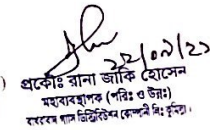 ২২/০৯/২১
প্রকৌঃ রানা জাকি হোসেন
মহাব্যবস্থাপক (পরিঃ ও উন্নঃ)
গ্যাস ডিস্ট্রিবিউশন কোম্পানী লিঃ কুমিল্লা।